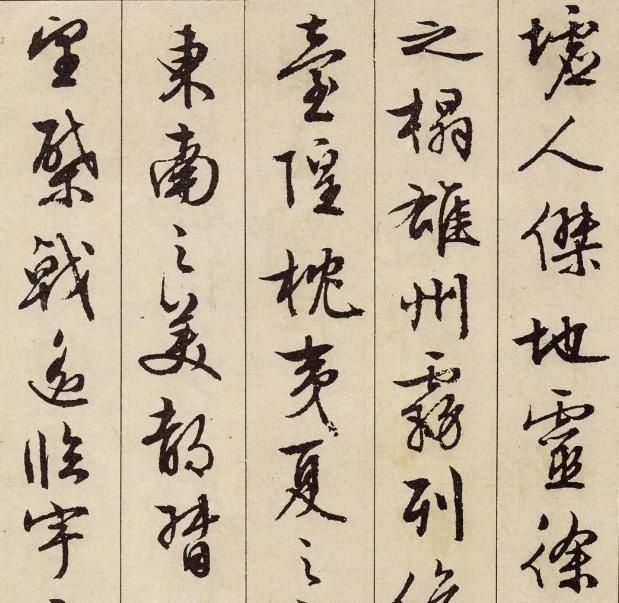 墟人傑地靈徐
之榻雄州霧列
臺隍枕夷夏之
東南之美都督
望棨戟遥臨宇